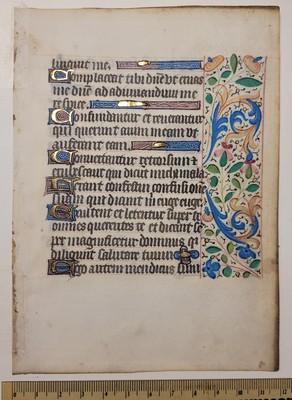 linquit me.
Complaceat tibi dñe ut eruas
me dñe ad adiuuandum me
respice.
Confundantur et reuereantur
qui querunt aīam meam ut
auferant eam.
Conuertantur retrorsum et
erubescant qui dicūt michi mala
Ferant confestim confusionē
suam qui dicunt m̄ euge euge
Exultent et letentur super te
omnes querentes te et dicant sē
per magnificetur dominus qui
diligunt salutare tuum
Ego autem mendicus sum
0 1 2 3 4 5 6 7 8 9 10 11 12